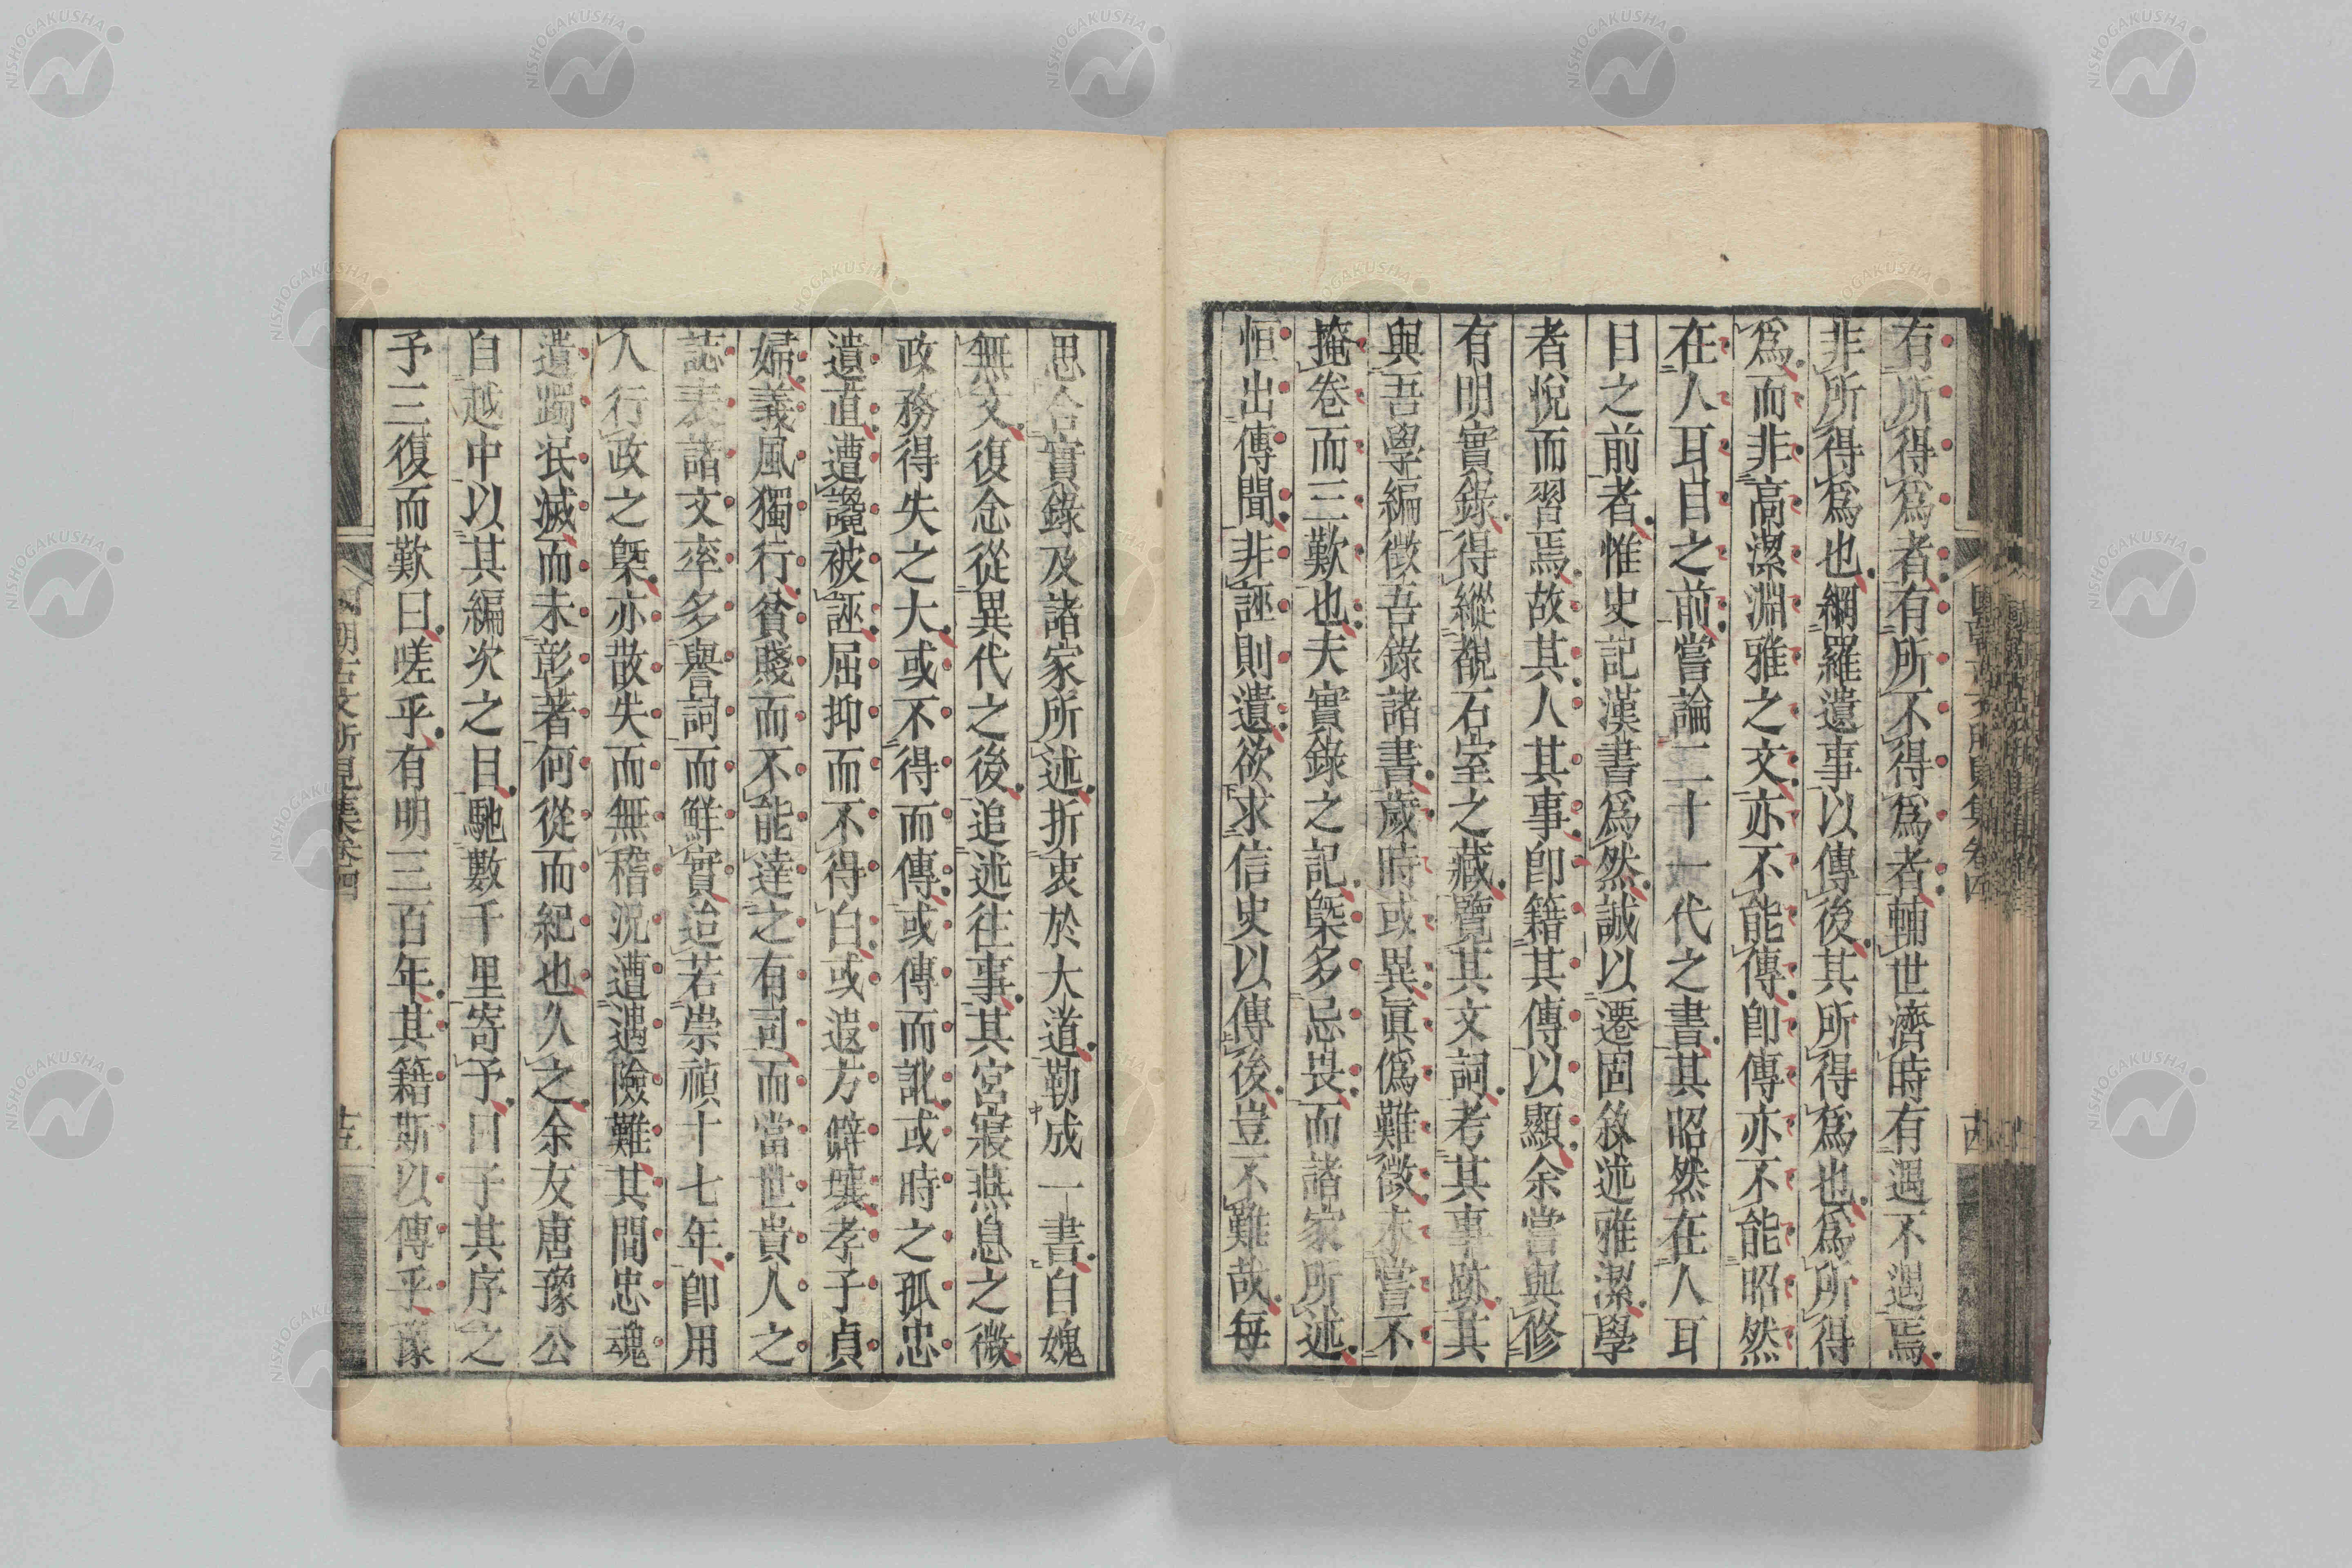 有所得爲者有所不得爲者輔世濟時有遇不遇焉
非所得爲也網羅遺事以傳後其所得爲也爲所得
爲而非高潔淵雅之文亦不能傳卽傳亦不能昭然
在人耳目之前嘗論二十一代之書其昭然在人耳
目之前者惟史記漢書爲然誠以遷固敘述雅潔學
者悅而習焉故其人其事卽籍其傳以顯余嘗與修
有明實錄得縱觀石室之藏覽其文詞考其事跡其
與吾學編徵吾錄諸書歲時或異眞僞難徵未嘗不
掩卷而三歎也夫實錄之記槩多忌畏而諸家所述
恒出傳聞非誣則遺欲求信史以傳後豈不難哉每
國朝古文所見集卷四
古
思合實錄及諸家所述折衷於大道勒成一書自媿
無文復念從異代之後追述往事其宮寢燕息之微
政務得失之大或不得而傳或傳而訛或時之孤忠
遺直遭讒被誣屈抑而不得白或遐方僻壤孝子貞
婦義風獨行貧賤而不能達之有司而當世貴人之
誌表諸文率多譽詞而鮮實迨若崇禎十七年卽用
人行政之槩亦散失而無稽況遭遇險難其間忠魂
遺躅泯滅而未彰著何從而紀也久之余友唐豫公
自越中以其編次之目馳數千里寄予曰子其序之
予三復而歎曰嗟乎有明三百年其籍斯以傳乎豫
國朝古文所見集卷四
十五